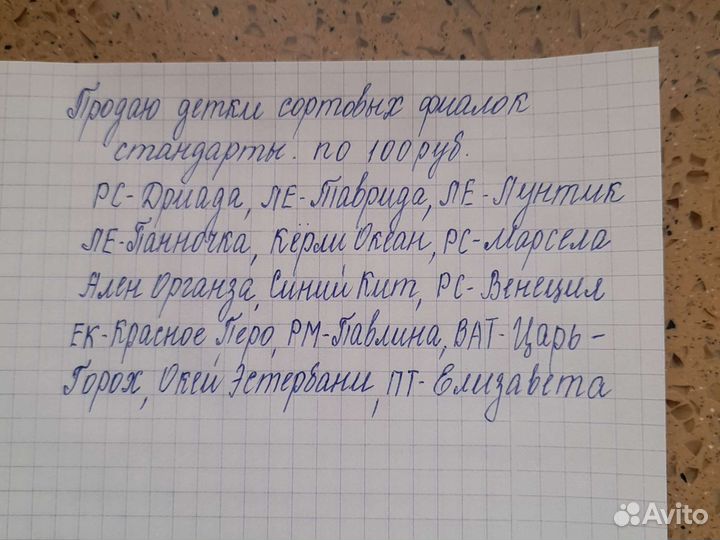 Продаю детки сортовых фиалок
стандарты. по 100 руб.
РС-Дриада, ЛЕ-Таврида, ЛЕ-Лунтик
ЛЕ-Панночка, Кёрли Океан, РС-Марсела
Ален Органза, Синий Кит, РС-Венеция
ЕК-Красное Перо, РМ-Павлина, ВАТ-Царь-
Горох, Окей Эстербани, ПТ-Елизавета
Avito